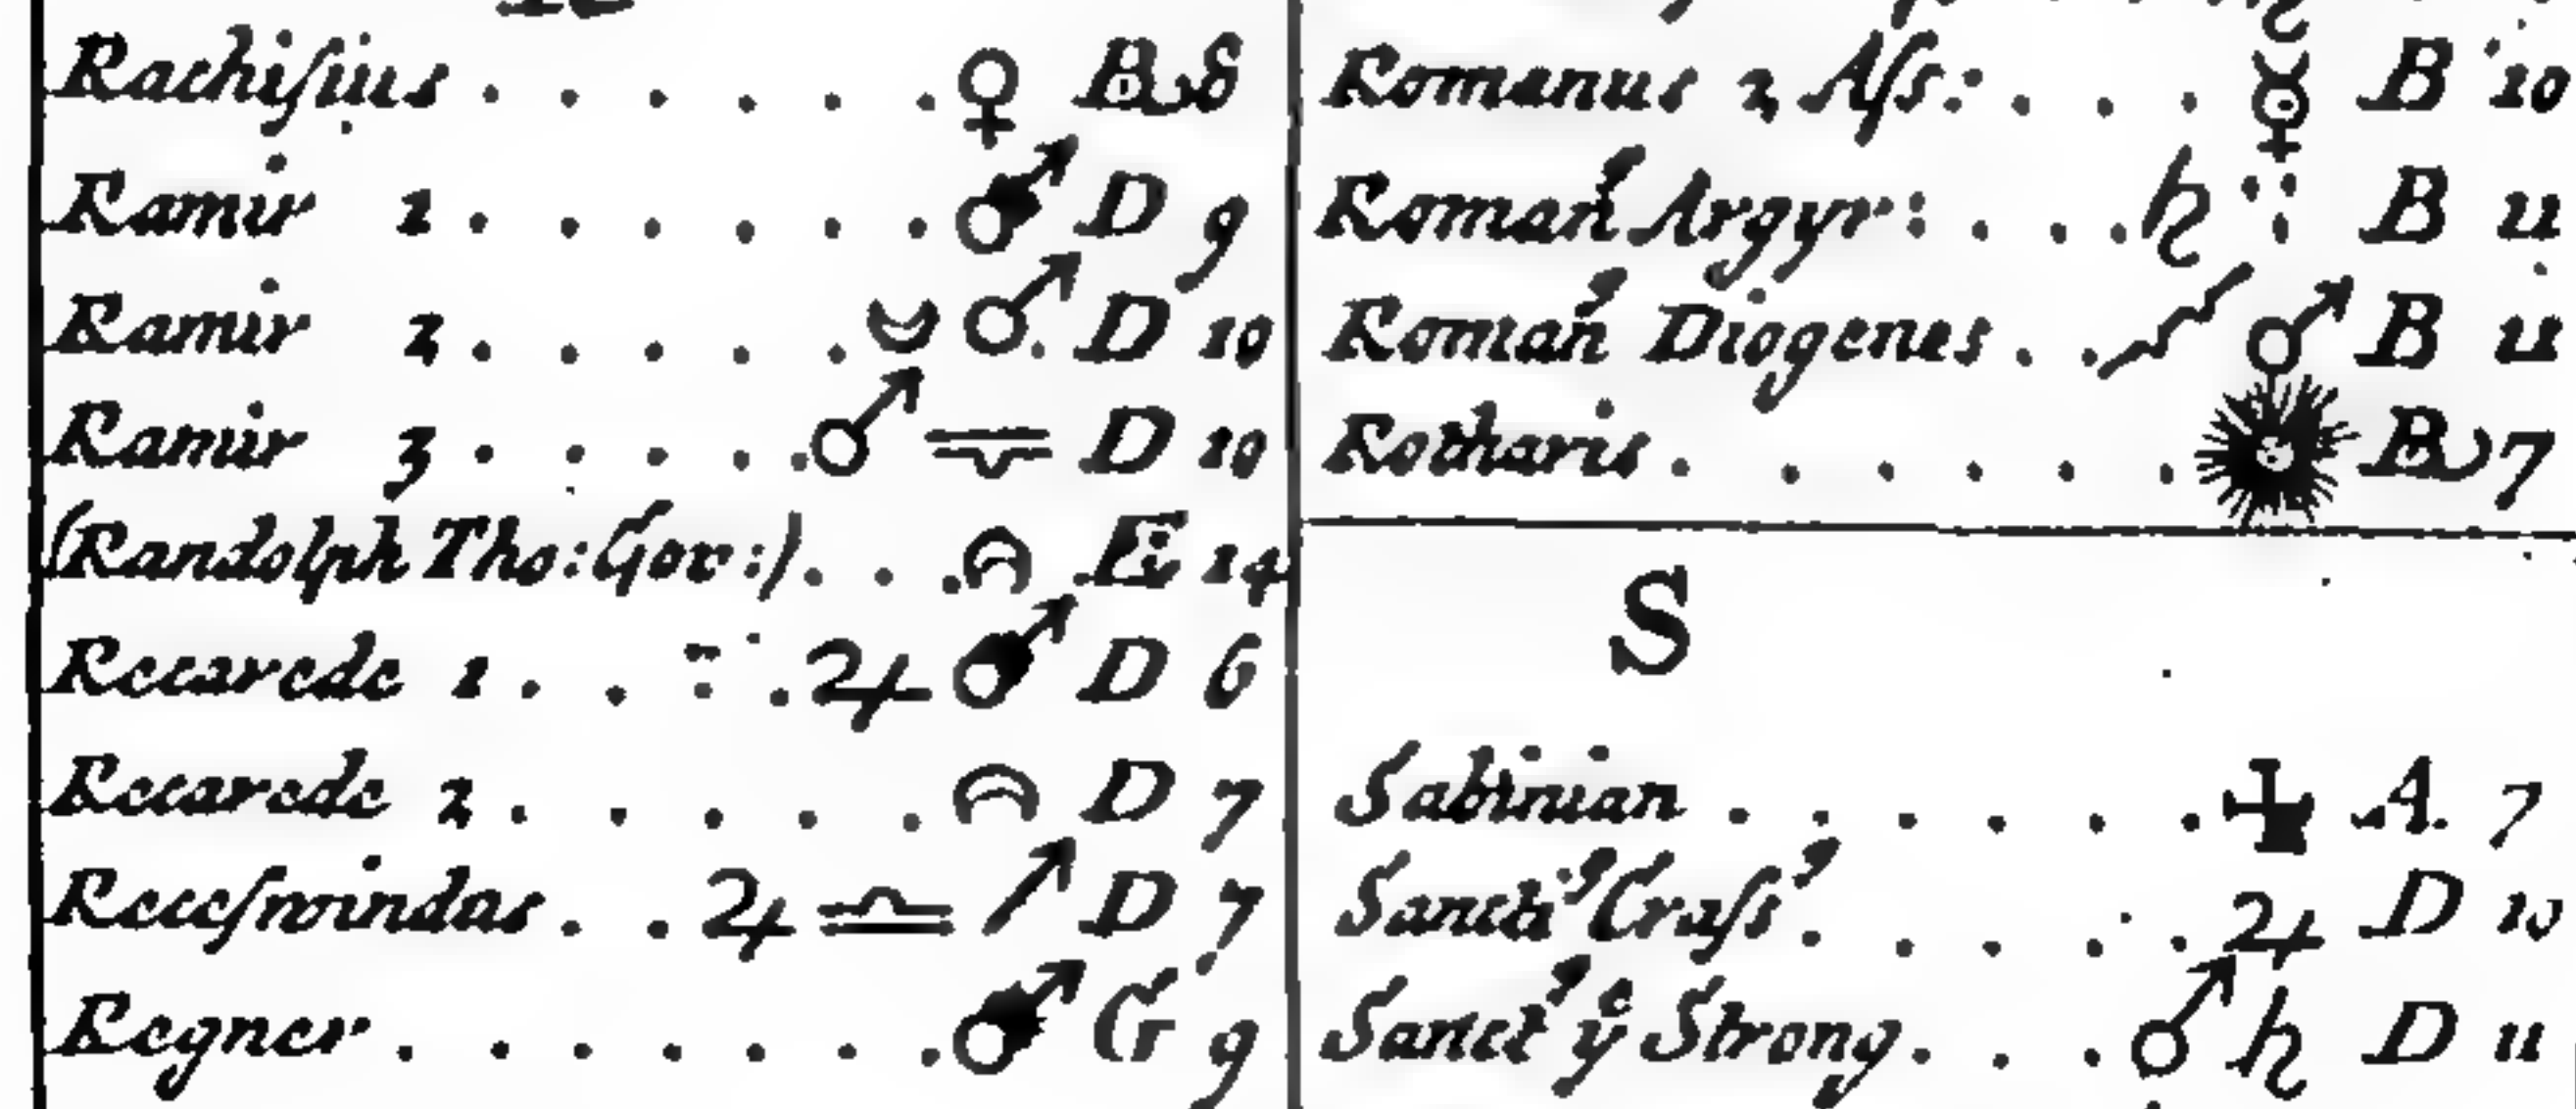 Rachiſius . . . . . . ♀ B 8
Ramir 1 . . . . . . ♂ D 9
Ramir 2 . . . . . ☽ ♂ D 10
Ramir 3 . . . . . ♂ ♎ D 10
(Randolph Tho: Gov:) . . . E 14
Reearede 1 . . . . ♃ ♂ D 6
Reearede 2 . . . . . D 7
Receſwindas . . ♃ ♎ ↗ D 7
Regner . . . . . . . ♂ G 9
Romanus 2 Aſs: . . . ☿ B 10
Roman⁹ Argyr: . . . ♄ B 11
Roman⁹ Diogenes . . ♂ B 11
Rotharis . . . . . . B 7
S
Sabinian . . . . . . A. 7
Sancti⁹ Craſs⁹ . . . . . ♃ D 10
Sanct⁹ yᵉ Strong . . . ♂ ♄ D 11